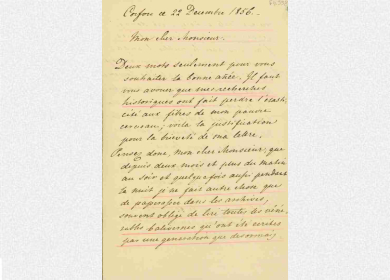 Corfou ce 22 Decembre 1856.
Mon cher Monsieur.
Deux mots seulement pour vous
souhaiter la bonne année. Il faut
vous avouer que mes recherches
historiques ont fait perdre l'élasti-
cité aux fibres de mon pauvre
cerveau; voilà la justification
pour la brieveté de ma lettre.
Pensez donc, mon cher Monsieur, que
depuis deux mois et plus du matin
au soir et quelquefois aussi pendant
la nuit je ne fait autre chose que
de dans les archives,
souvent obligé de lire toutes les
qu'ont été
par une generation que desormais